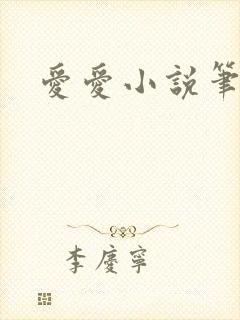 愛愛小說筆
李慶寧